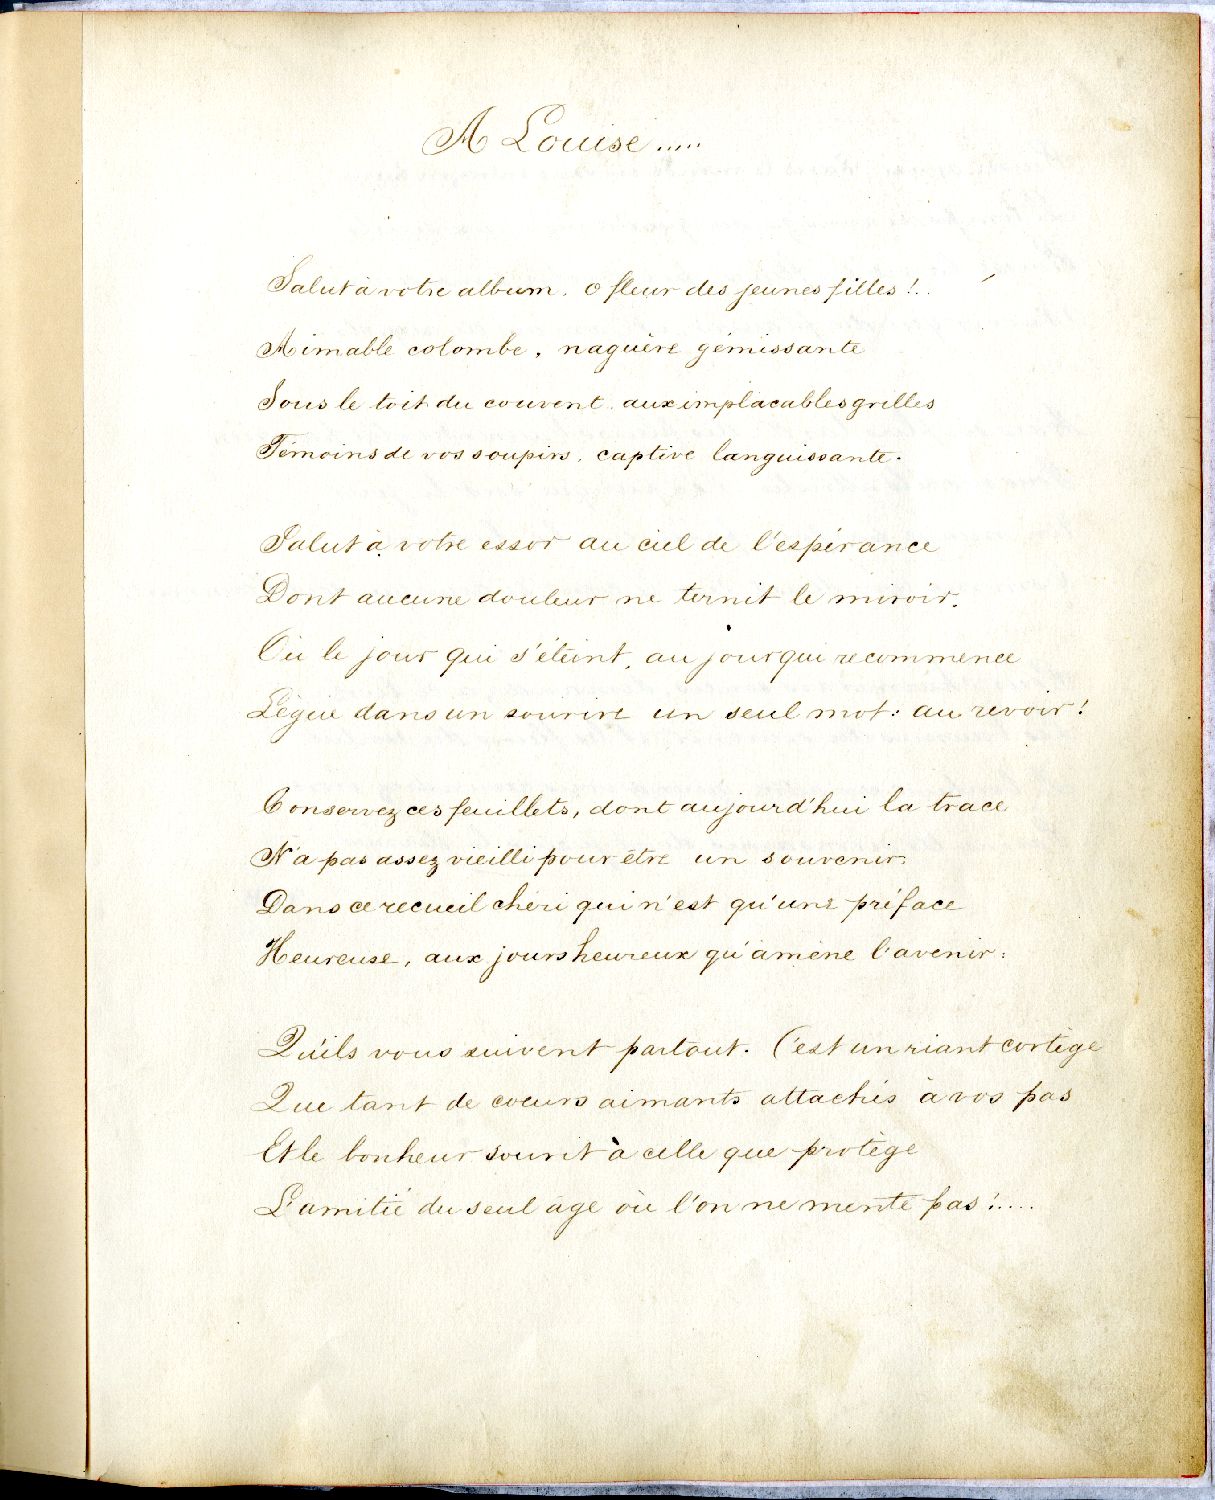 A Louise.....
Salut à votre album, o fleur des jeunes filles!..
Aimable colombe, naguère gémissante
Sous le toit du couvent, aux implacables grilles
Témoins de vos soupirs, captive languissante.
Salut à votre essor au ciel de l'espérance
Dont aucune douleur ne ternit le miroir,
Où le jour qui s'éteint, au jour qui recommence
Lègue dans un sourire un seul mot: au revoir!
Conservez ces feuillets, dont aujourd'hui la trace
N'a pas assez vieilli pour être un souvenir:
Dans ce recueil chéri qui n'est qu'une préface
Heureuse, aux jours heureux qu'amène l'avenir:
Qu'ils vous suivent partout. C'est un riant cortège
Que tant de coeurs aimants attachés à vos pas
Et le bonheur sourit à celle que protège
L'amitié du seul âge où l'on ne mente pas!....